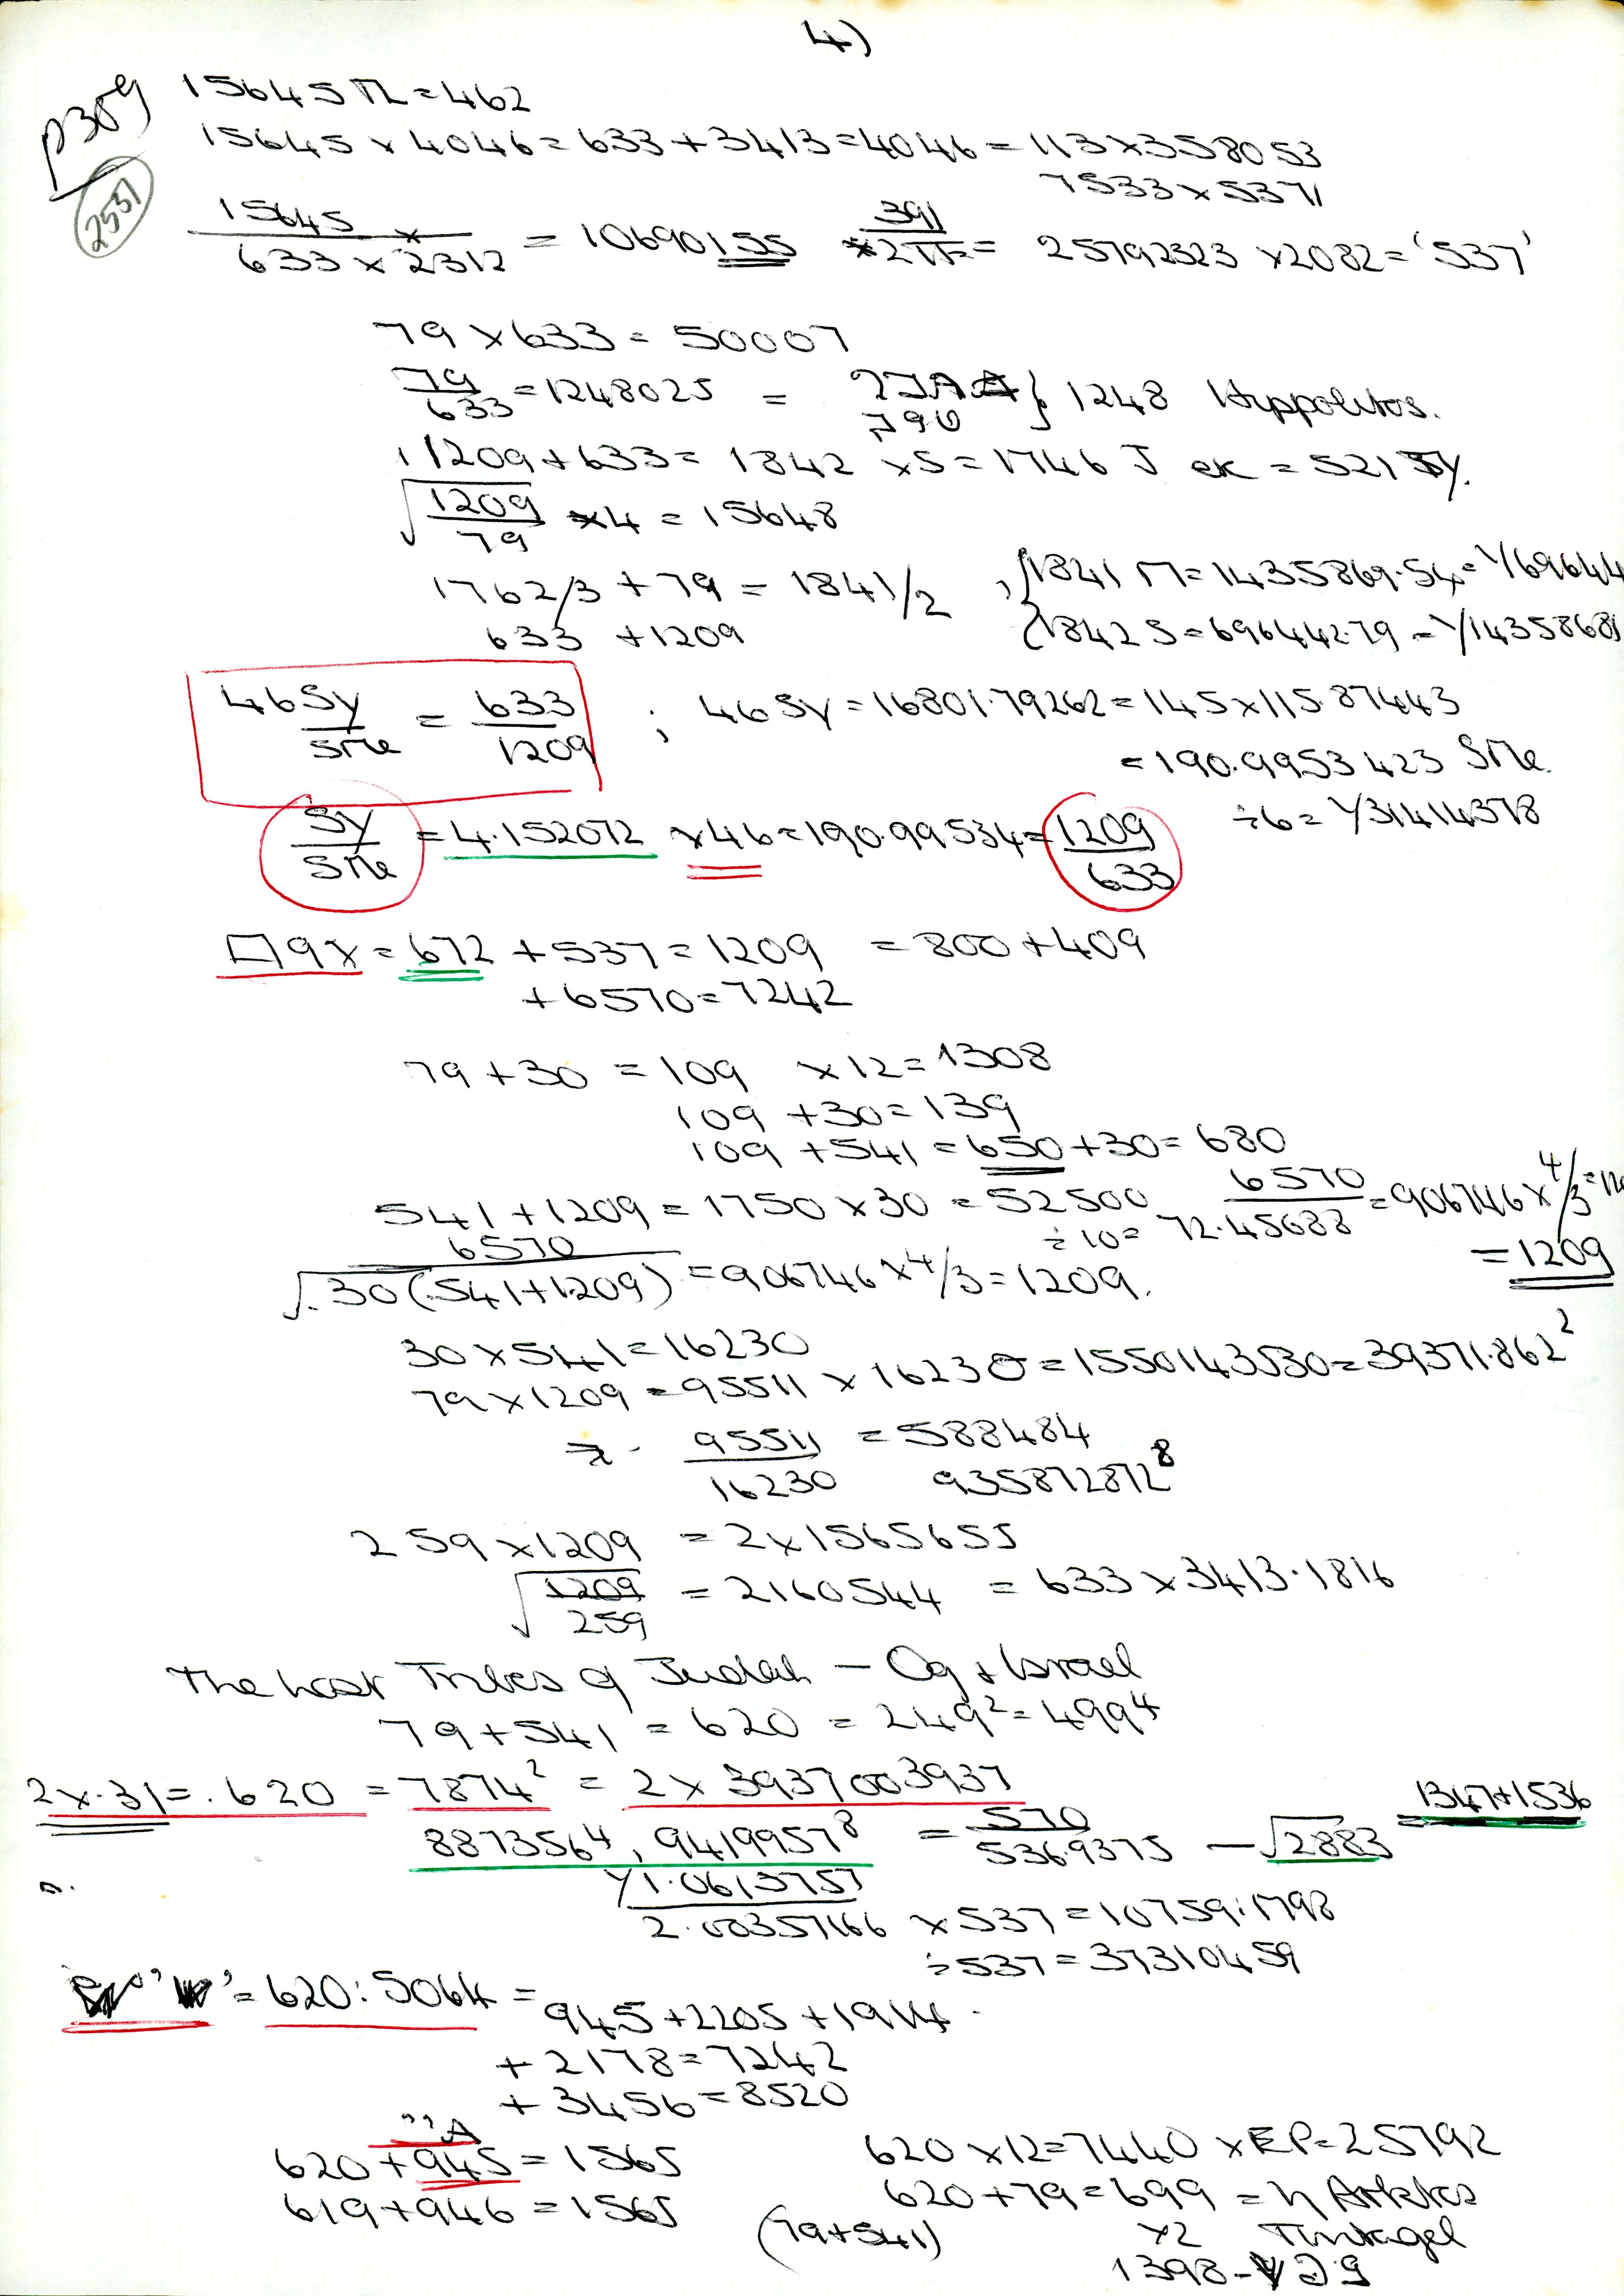 4)
p389
2531
15645 ㄇ = 462
15645 x 4046 = 633 + 3413 = 4046 = 113 x 358053
7533 x 5371
15645 x
633 x 2312 = 10690155 391 x 2π = 25792323 x 2082 = '537'
79 x 633 = 50007
79/633 = 1248025 = 790 } 1248 Hyppolitos.
1209 + 633 = 1842 x S = 1746 J ek = 521 Sy.
√1209/79 x 4 = 15648
1762/3 + 79 = 1841/2 , { 1841 Π = 1435869.54 = 1/69644
633 + 1209 { 1842 S = 6964442.79 = 1/1435868
46 Sy/SMe = 633/1209 ; 46 Sy = 16801.79262 = 145 x 115.87443
= 190.9953423 SMe
÷6 = 1/31414378
Sy/SMe = 4.152072 x 46 = 190.99534 = 1209/633
9x = 672 + 537 = 1209 = 800 + 409
+ 6570 = 7242
79 + 30 = 109 x 12 = 1308
109 + 30 = 139
109 + 541 = 650 + 30 = 680
541 + 1209 = 1750 x 30 = 52500 6570/72.45688 = 906746 x 4/3 =
÷10= = 1209
6570/√30(541+1209) = 906746 x 4/3 = 1209.
30 x 541 = 16230
79 x 1209 = 95511 x 16230 = 1550143530 = 39371.862²
95511/16230 = 588484
935872872⁸
259 x 1209 = 2 x 1565655
√1209/259 = 2160544 = 633 x 3413.1816
The Lost Tribes of Judah – Og + Israel
79 + 541 = 620 = 249² = 499⁴
2 x .31 = .620 = 7874² = 2 x 3937003937
887356⁴, 9419957⁸ = 570/536.9375 – √2883 = 1347+1536
1/1.0613757
2.00357166 x 537 = 10759.1798
÷ 537 = 37310459
= 620 : 5064 = 945 + 2205 + 1914
+ 2178 = 7242
+ 3456 = 8520
620 + 945 = 1565
619 + 946 = 1565
620 x 12 = 7440 x EP = 25792
620 + 79 = 699 = η Arktos
(79+541) x2 Tintagel
1398 -